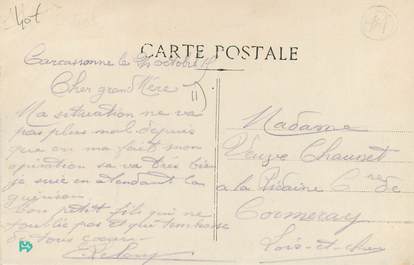 40t
Carcassonne le octobre
CARTE POSTALE
Cher grand Mère
Ma situation ne va
pas plus mal depuis
que on ma fait mon
opération sa va très bien
je suis en atendant la
guerison
bon petit fils qui ne
toublie pas et qui tembrasse
de tous coeur
Madame
Veuve Chaunet
a la Cne de
Cormeray
Loir-et-cher